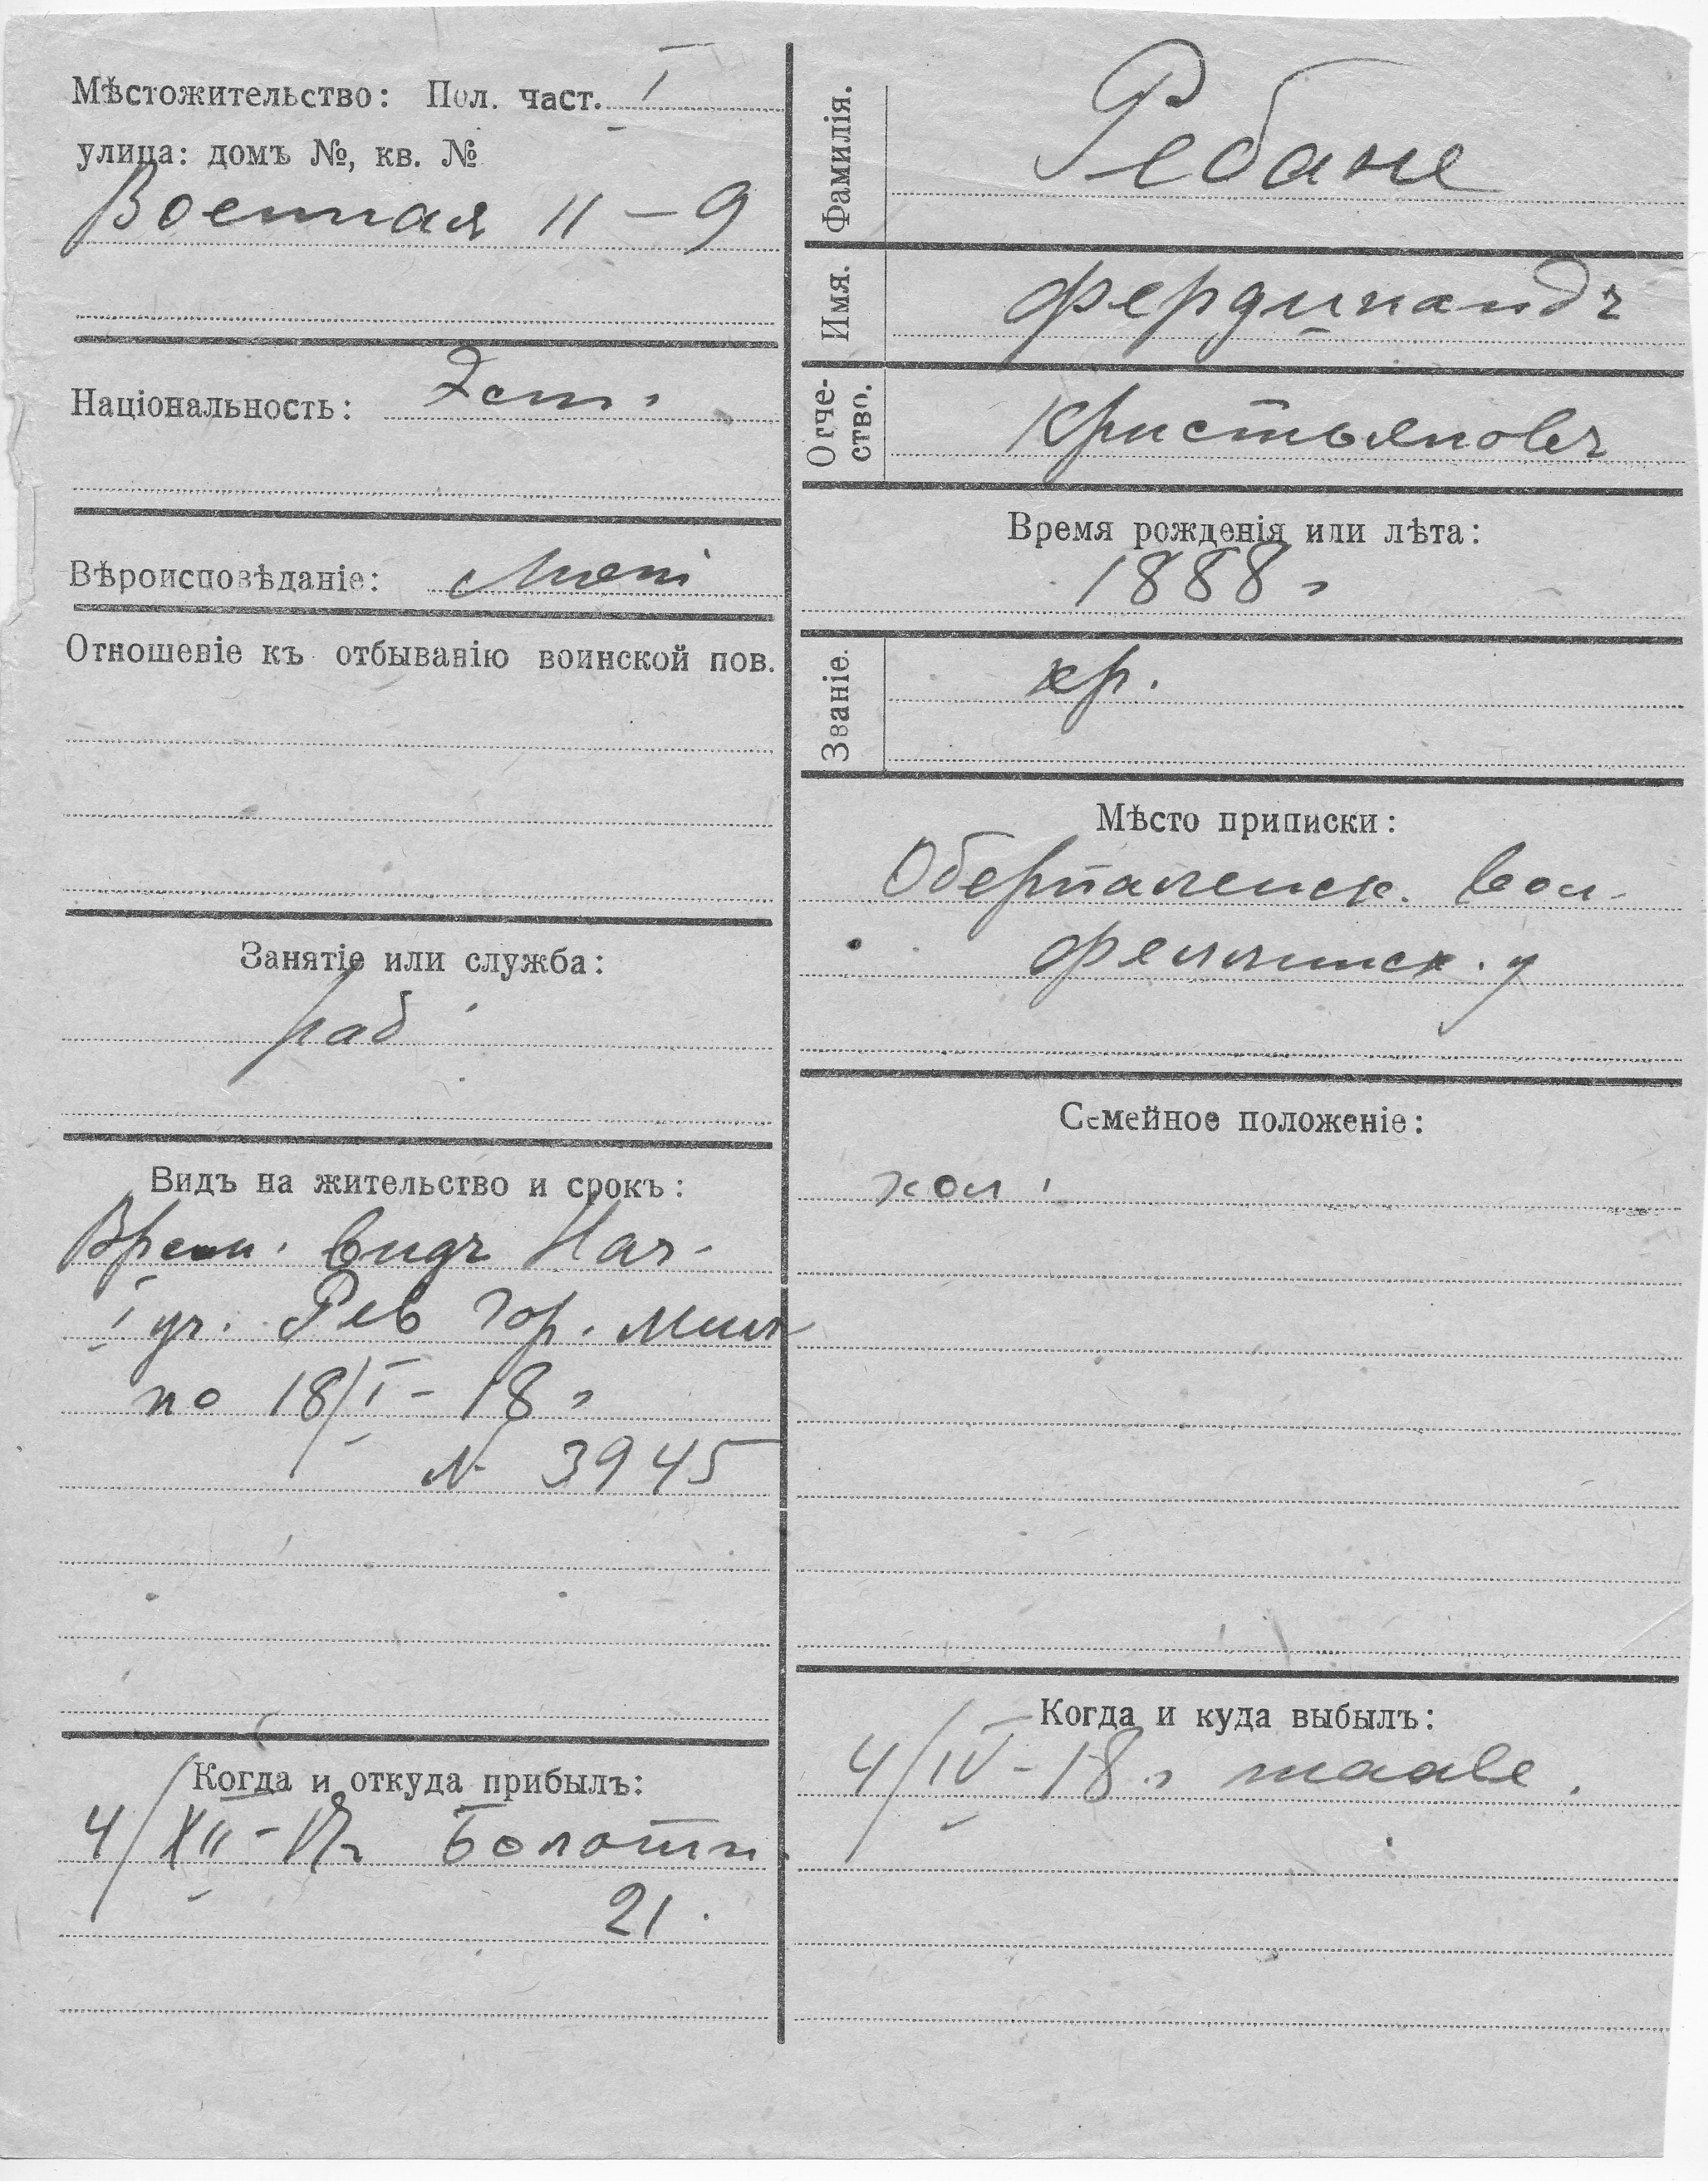 Мѣстожительство: Пол. част. I
улица: домъ №, кв. №
Военная 11 – 9
Національность: Эст.
Вѣроисповѣданіе: Лют
Отношеніе къ отбыванію воинской пов.
Занятіе или служба:
раб.
Видъ на жительство и срокъ:
Врем. видъ Нач.
I уч. Рев Гор. Мил
по 18/I – 18 г
№ 3945
Когда и откуда прибылъ:
4/XII – 17 г Болотн.
21.
Фамилія. Ребане
Имя. Фердинандъ
Отче-
ство. Кристьяновъ
Время рожденія или лѣта:
1888 г
Званіе. кр.
Мѣсто приписки:
Оберпаленск. вол.
Феллинск. у
Семейное положеніе:
хол.
Когда и куда выбылъ:
4/IV – 18 г maale.